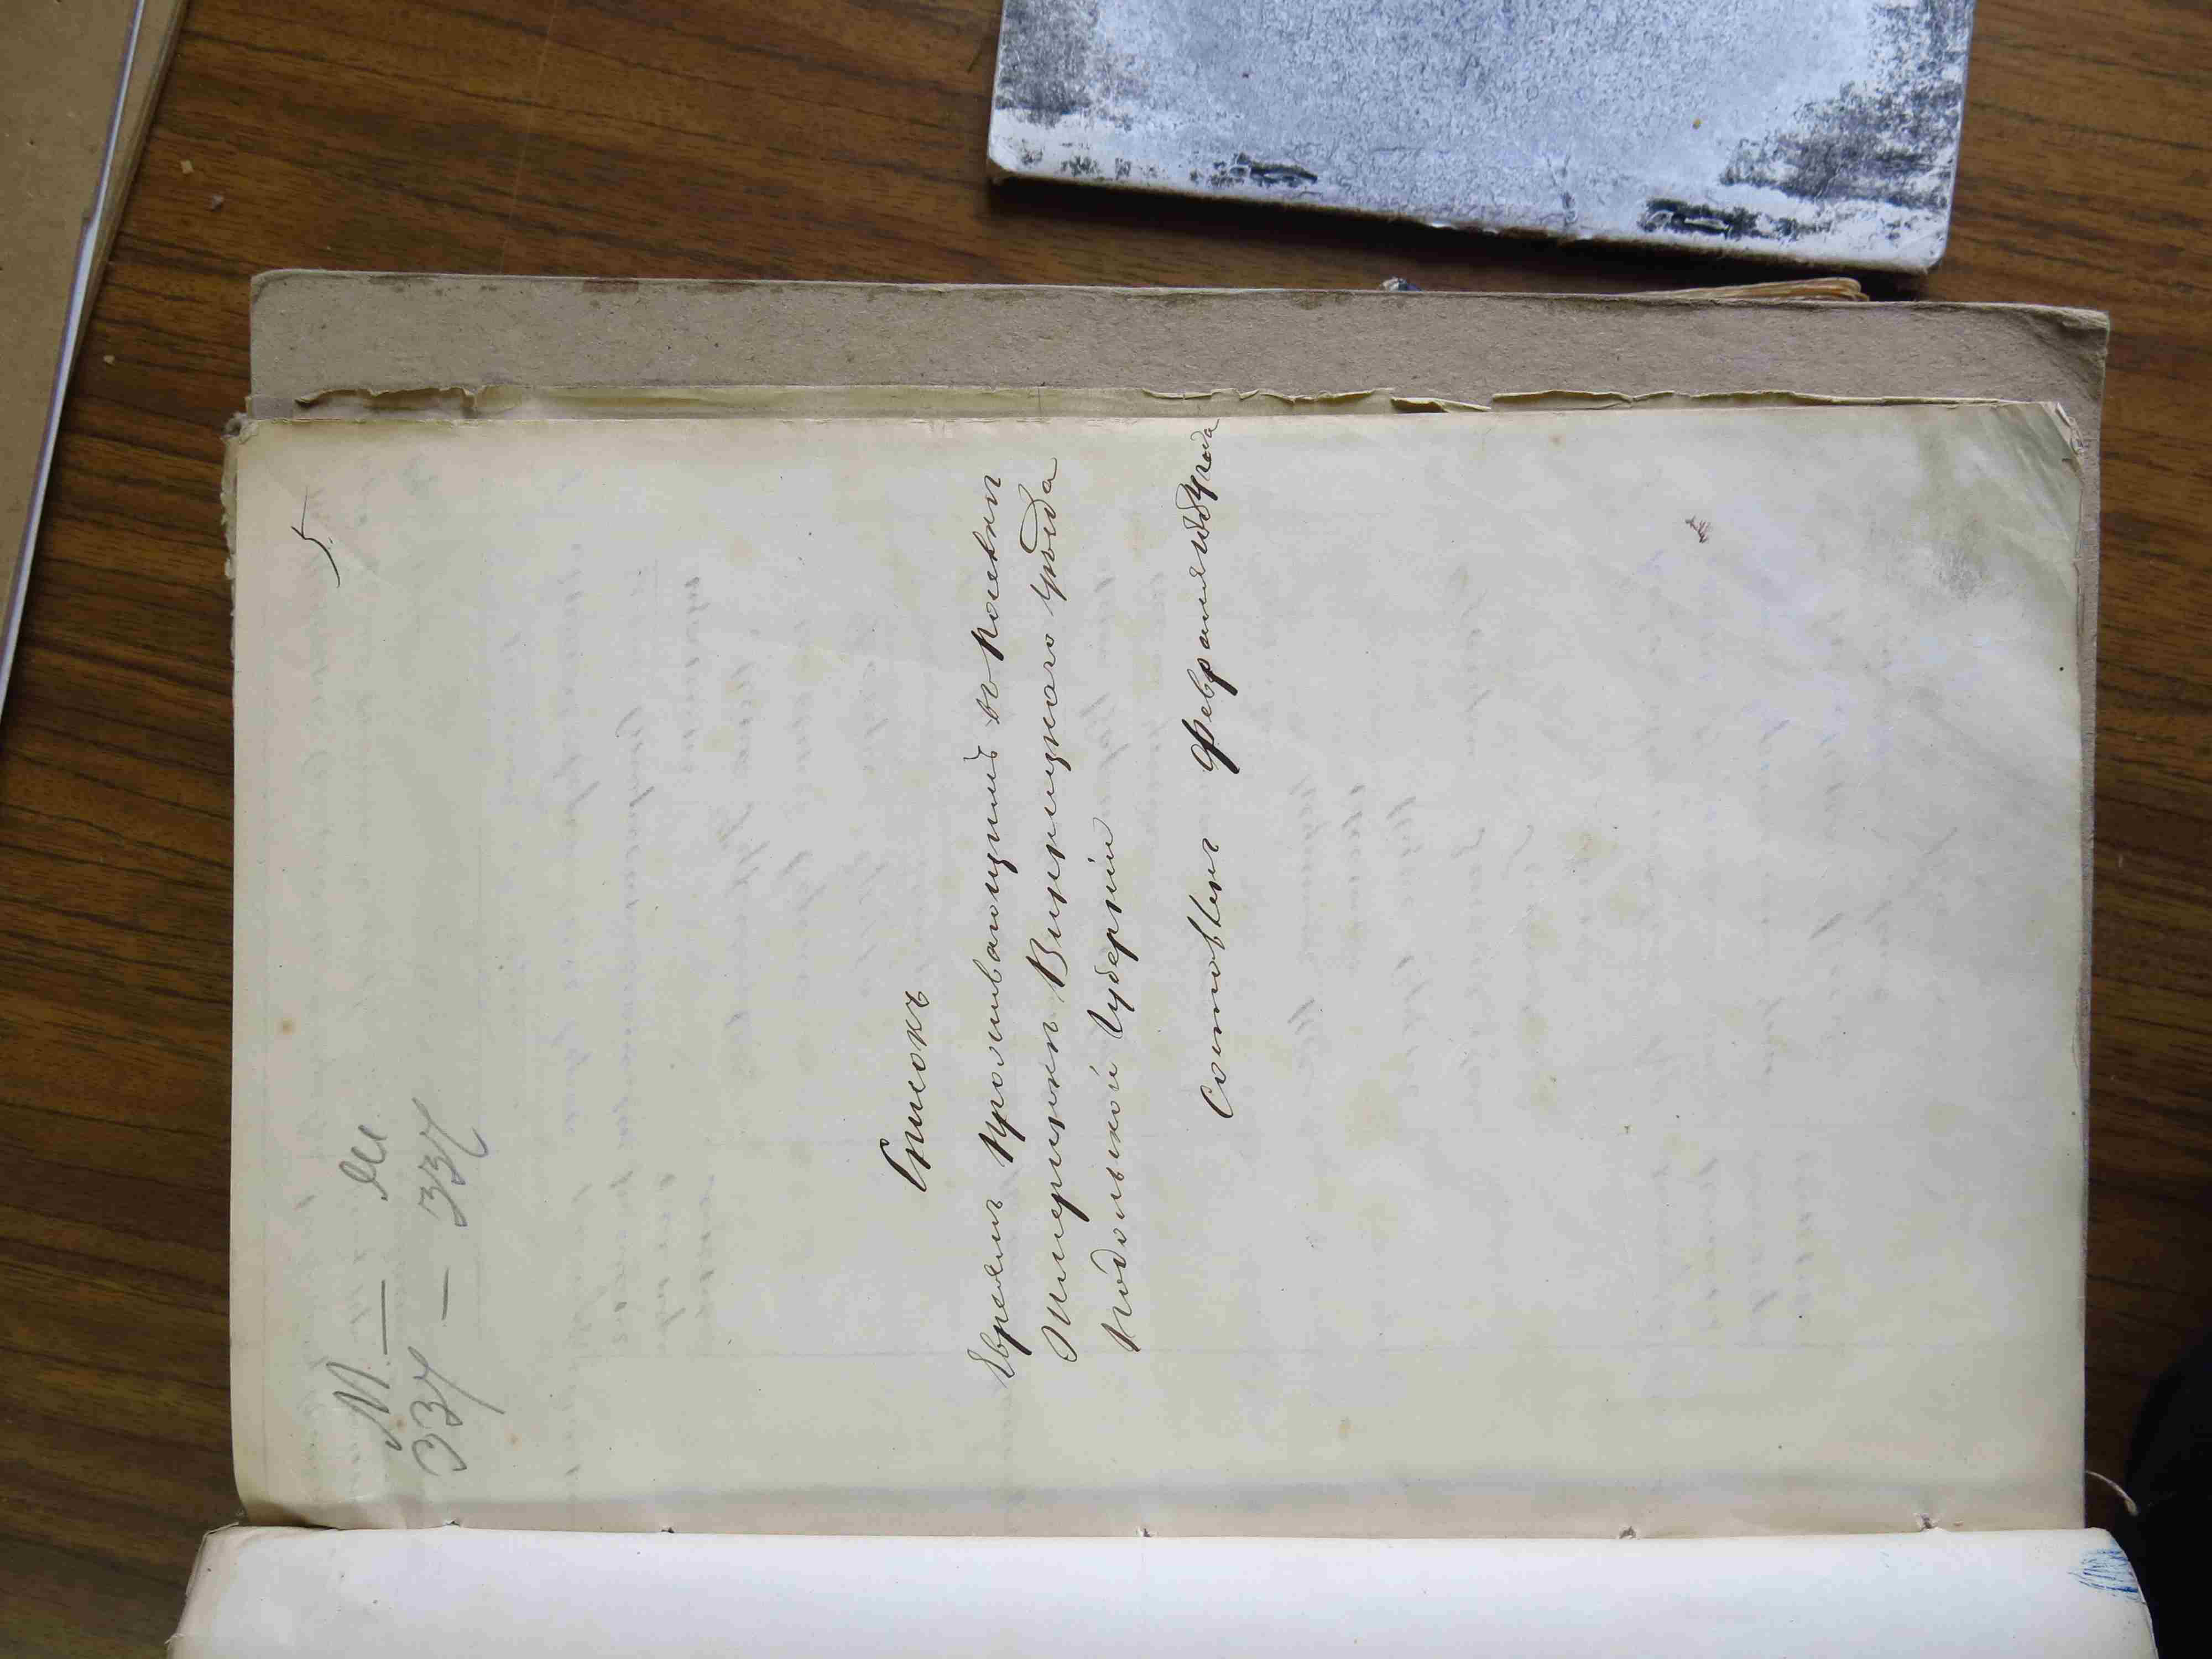 5
М — М
337 — 337
Списокъ
Евреямъ проживающимъ въ
Винницкаго уѣзда
Подольской Губерніи
Составленъ Февраля года